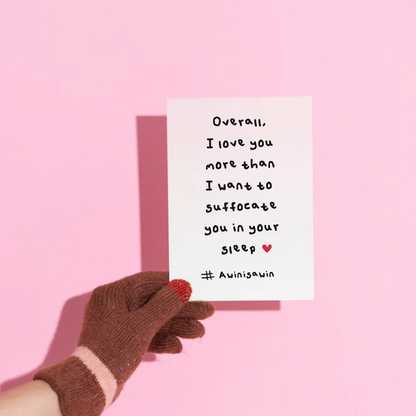 Overall,
I love you
more than
I want to
suffocate
you in your
sleep ♥
# Awinisawin